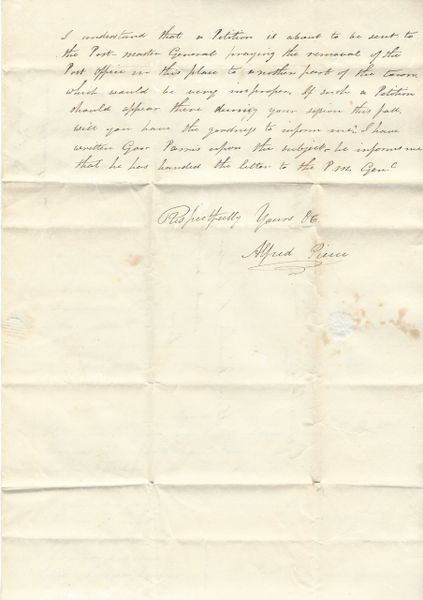 I understand that a Petition is about to be sent to
the Post-master General praying the removal of the
Post Office in this place to another part of the town
which would be very improper. If such a Petition
should appear there during your session this fall
will you have the goodness to inform me. I have
written Gov Parris upon the subject & he informs me
that he has handed the letter to the P.M. Genl
Respectfully Yours &c
Alfred Pierce